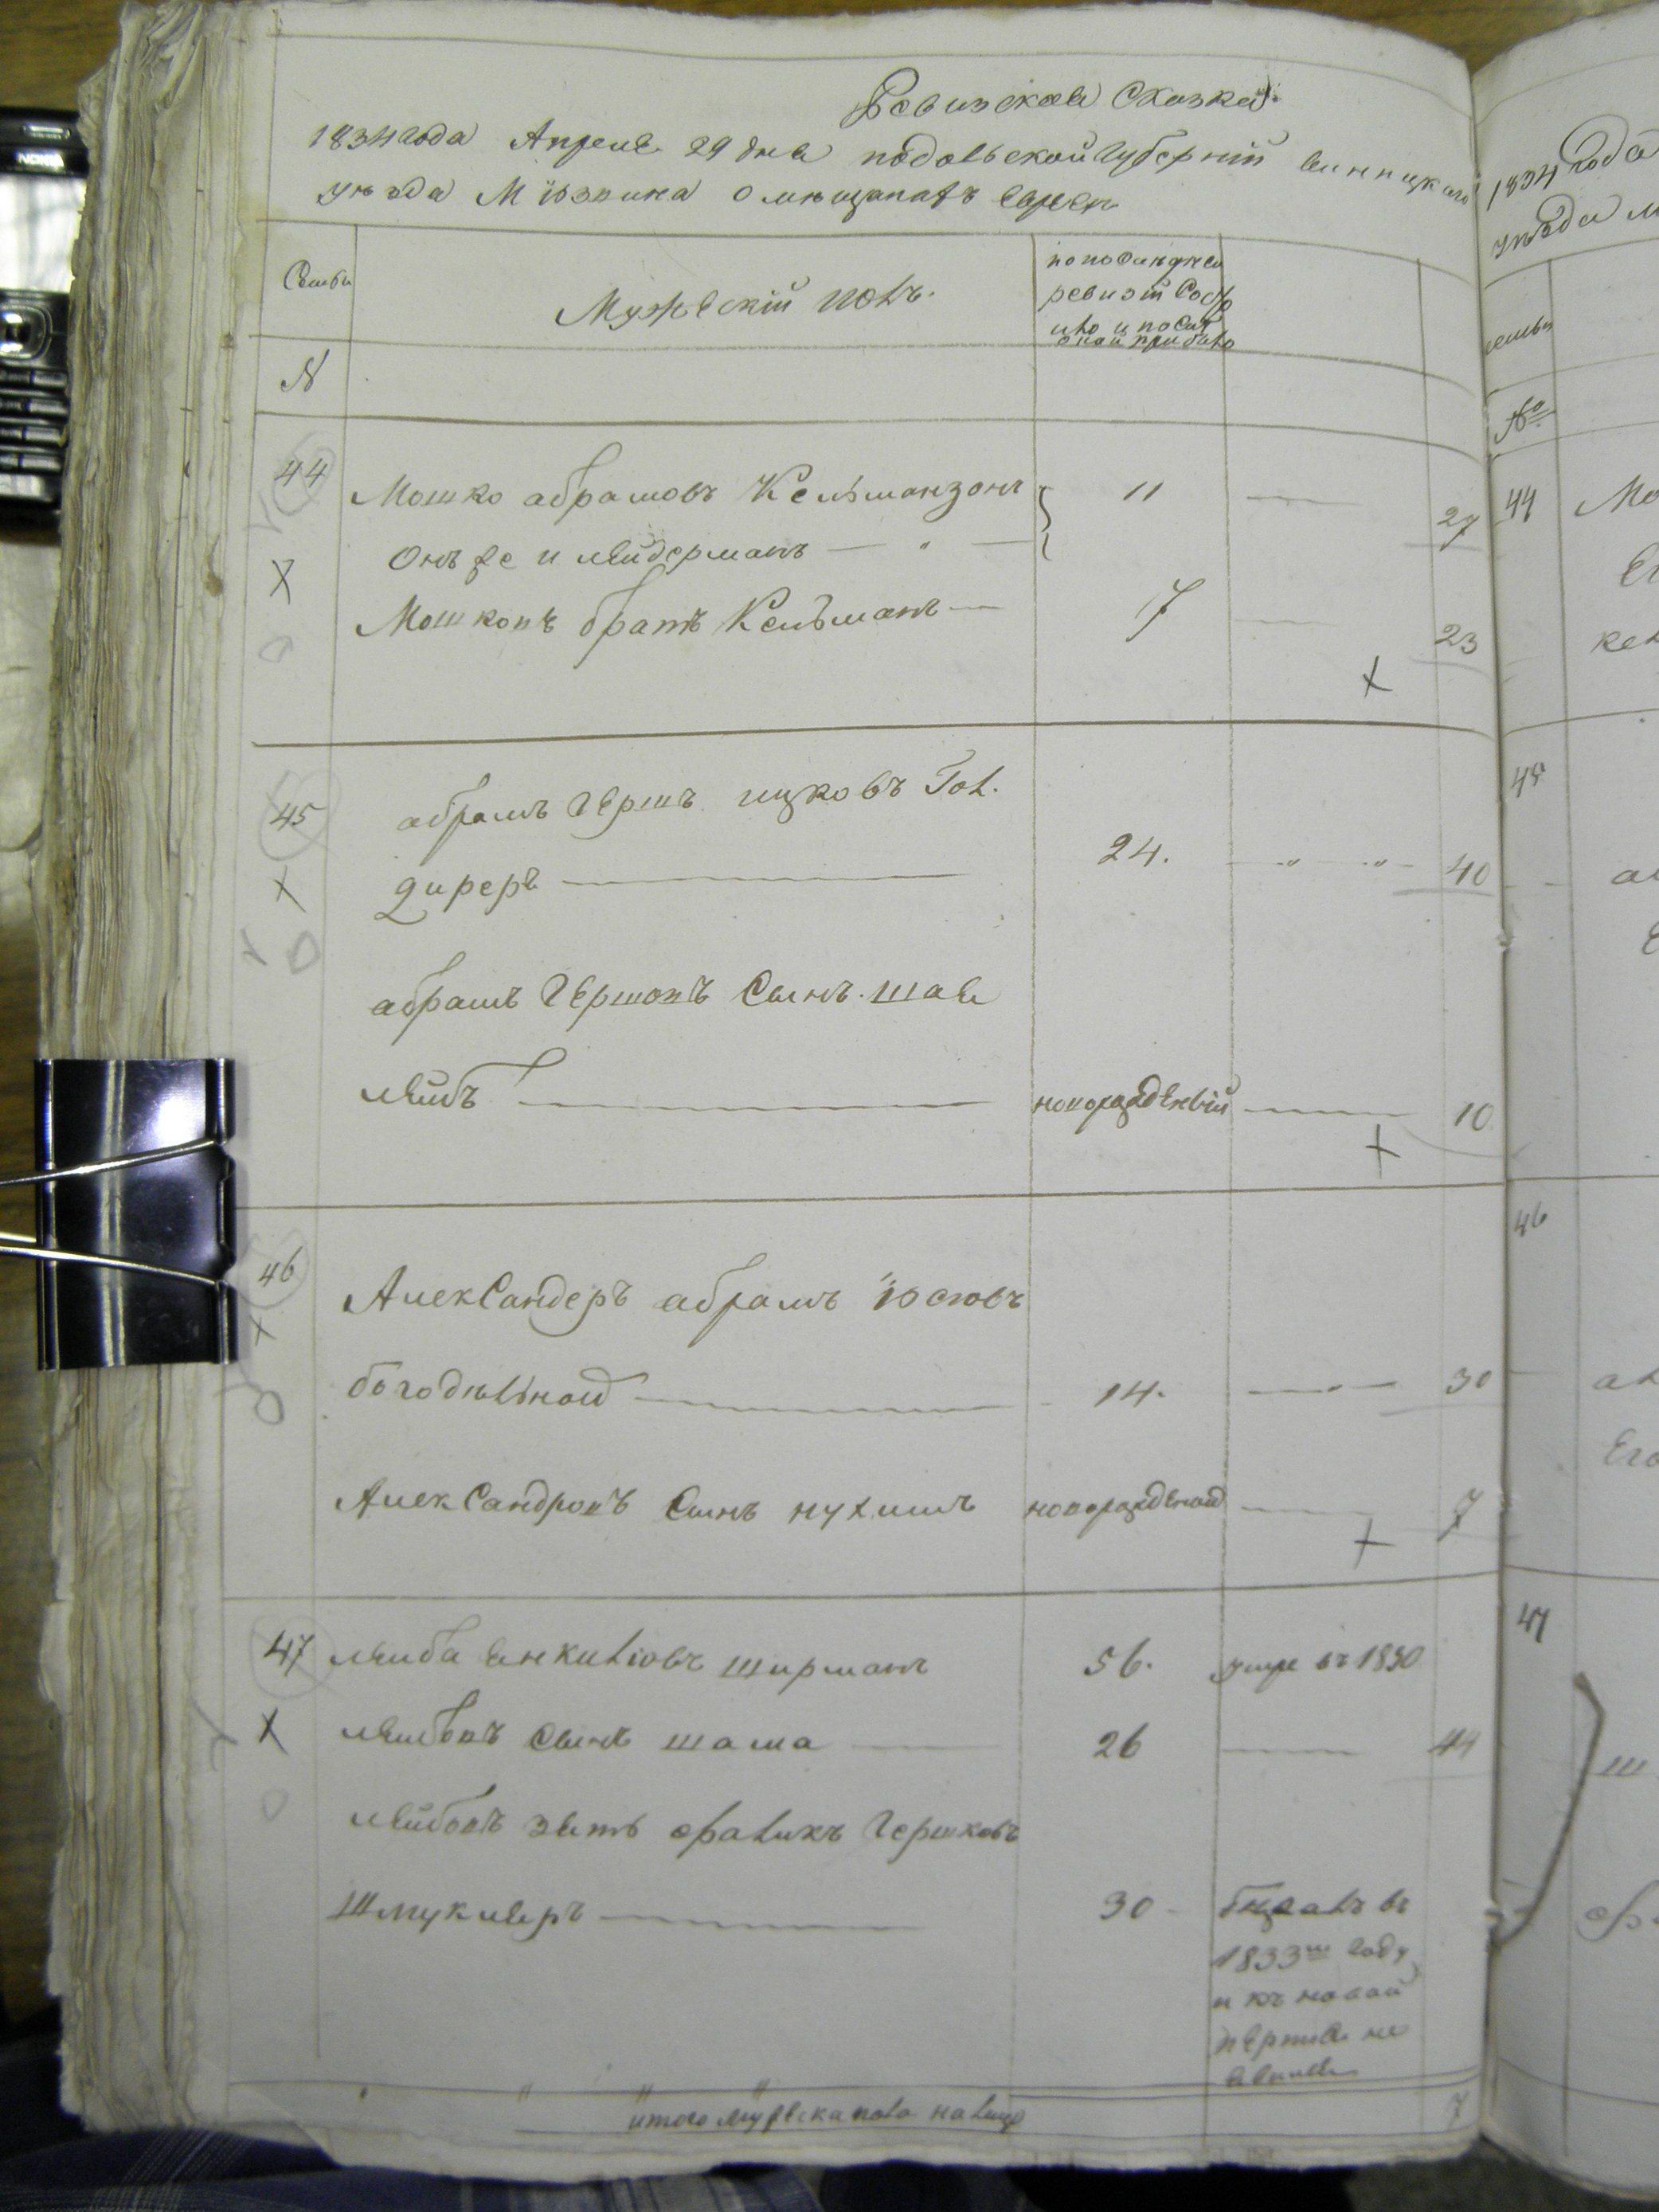 Ревизская Сказка
1834 года Апреля 29 дня подольской губернiи винницкаго
уезда М Юзвина о мещанахъ Евреяхъ
Семьи
Мужескiй полъ.
по последней
ревизiи состо
яло и после
оной прибыло
N
44
Мошко абрамовъ Кельманзонъ
11
27
Онъ же и лейдерманъ — " —
Мошковъ братъ Кельманъ —
7
23
45
абрамъ Гершъ ицковъ Гол.
диреръ
24.
40
абрамъ Гершовъ Сынъ шая
лейбъ
новорожденый
10
46
АлекСандеръ абрамъ юсiовъ
богодельной
14.
30
АлекСандровъ Сынъ нухимъ
новорожденой
7
47
лейба Янкилiовъ ширманъ
56.
умре въ 1830
лейбовъ Сынъ шама
26
44
лейбовъ зять фраликъ Гершковъ
Шмуклеръ
30
въ
1833м Году
и къ новой
не
итого мужеска пола на лицо
7
1834 года
уезда
семьи
№
44
Мо
45
46
47